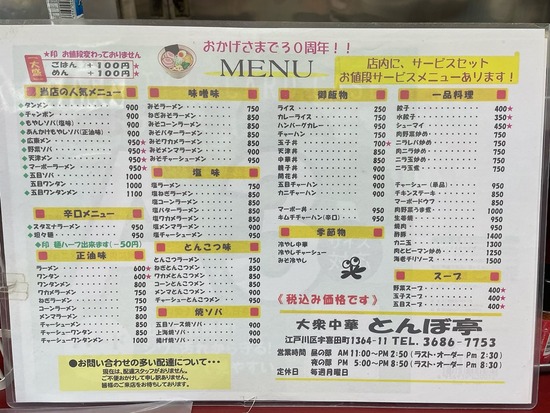 ★印 お値段変わっておりません
大盛
ごはん +100円
めん +100円
おかげさまで30周年!!
MENU
店内に、サービスセット
お値段サービスメニューあります!
当店の人気メニュー
タンメン 900
チャンポン 900
もやしソバ(塩味) 900
あんかけもやしソバ(正油味) 900
広東メン 950★
野菜ソバ 950★
天津メン 950★
マーボーラーメン 950★
五目ソバ 1000
五目ワンタン 1000
五目ワンタンメン 1100
辛口メニュー
スタミナラーメン 950
坦々麺 950
印 麺ハーフ出来ます(−50円)
正油味
ラーメン 600★
ワンタン 600★
ワンタンメン 800
ワカメラーメン 750
ねぎラーメン 750
コーンラーメン 750
メンマラーメン 800
チャーシューメン 850
チャーシューワンタン 850
チャーシューワンタンメン 1050
●お問い合わせの多い配達について・・・
現在は、配達スタッフがおりません。
ご不便おかけして申し訳ありません。
皆様のご来店をお待ちしております。
味噌味
みそラーメン 750
みそねぎラーメン 850
みそコーンラーメン 850
みそバターラーメン 850
みそワカメラーメン 850
みそメンマラーメン 900
みそチャーシューメン 950
塩味
塩ラーメン 750
塩ねぎラーメン 850
塩コーンラーメン 850
塩バターラーメン 850
塩ワカメラーメン 850
塩メンマラーメン 900
塩チャーシューメン 950
とんこつ味
とんこつラーメン 750
ねぎとんこつメン 850
ワカメとんこつメン 850
コーンとんこつメン 850
メンマとんこつメン 900
チャーシューとんこつメン 950
焼ソバ
五目ソース焼ソバ 900
上海焼ソバ 900
揚げ焼ソバ 950
御飯物
ライス 250
カレーライス 750
ハンバーグカレー 900
チャーハン 750
玉子丼 700
天津丼 850
中華丼 850
親子丼 850
五目チャーハン 900
カツカレー 900
マーボー丼 900
キムチチャーハン(辛口) 950
季節物
冷やし中華
冷やしチャーシュー
みそ冷やし
《税込み価格です》
一品料理
餃子 400★
水餃子 350★
シューマイ 450★
肉野菜炒め
ニラレバ炒め
肉ニラ炒め
ニラ玉炒め
ニラ玉煮
チャーシュー(単品)
チキンステーキ
マーボードウフ
生姜焼
焼肉
酢豚
カニ玉
肉とピーマン炒め
海老チリソース
スープ
野菜スープ 400★
玉子スープ 400★
五目スープ
大衆中華 とんぼ亭
江戸川区宇喜田町1364-11 TEL. 3686-7753
営業時間 昼の部 AM 11:00〜PM 2:50 (ラスト・オーダー Pm 2:30)
夜の部 PM 5:00〜PM 8:50 (ラスト・オーダー Pm 8:30)
定休日 毎週月曜日